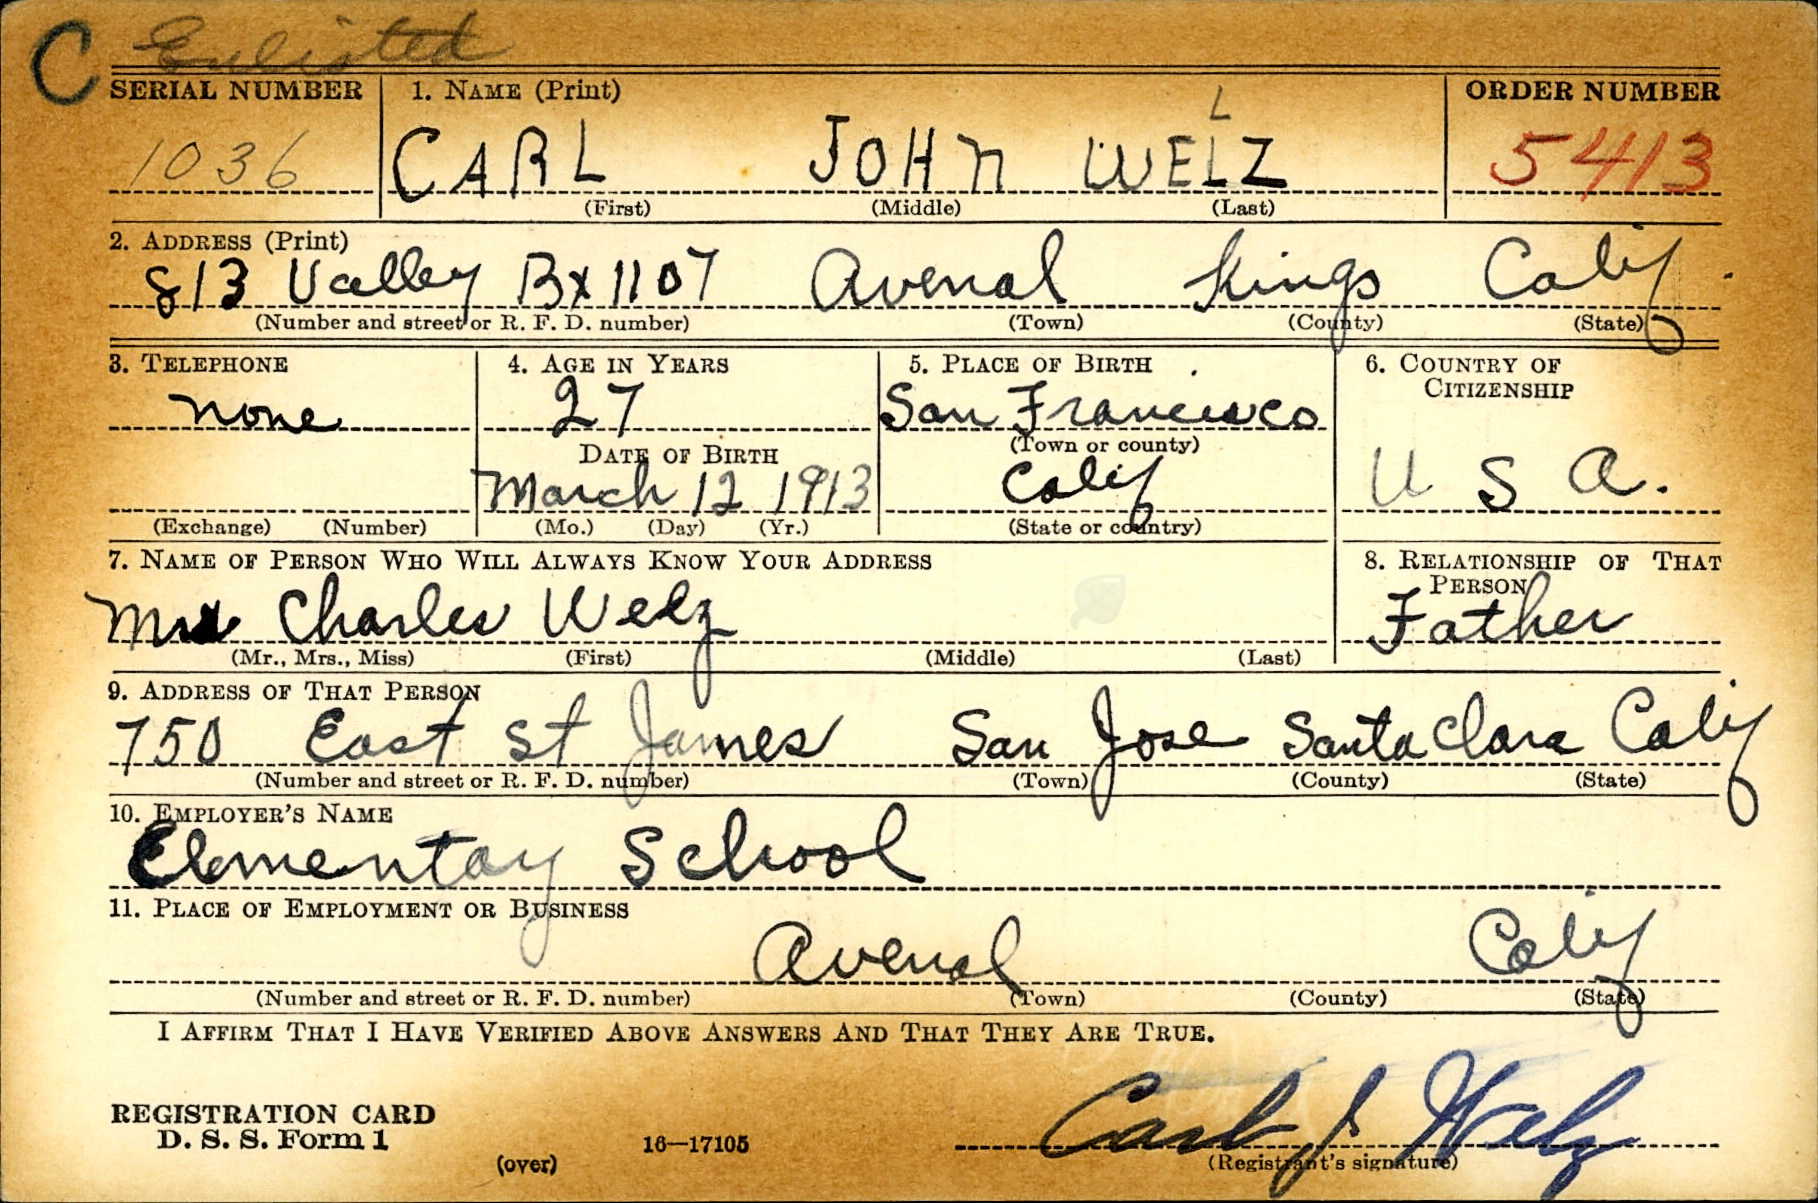 C Enlisted
SERIAL NUMBER 1. NAME (Print) ORDER NUMBER
L
1036 CARL JOHN WELZ 5413
(First) (Middle) (Last)
2. ADDRESS (Print)
813 Valley Bx 1107 Avenal Kings Calif.
(Number and street or R. F. D. number) (Town) (County) (State)
3. TELEPHONE 4. AGE IN YEARS 5. PLACE OF BIRTH 6. COUNTRY OF CITIZENSHIP
none 27 San Francisco
(Town or county)
DATE OF BIRTH
March 12 1913 Calif U S A.
(Exchange) (Number) (Mo.) (Day) (Yr.) (State or country)
7. NAME OF PERSON WHO WILL ALWAYS KNOW YOUR ADDRESS 8. RELATIONSHIP OF THAT PERSON
Charles Welz Father
(Mr., Mrs., Miss) (First) (Middle) (Last)
9. ADDRESS OF THAT PERSON
750 East St James San Jose Santa Clara Calif
(Number and street or R. F. D. number) (Town) (County) (State)
10. EMPLOYER'S NAME
Elementay School
11. PLACE OF EMPLOYMENT OR BUSINESS
Avenal Calif
(Number and street or R. F. D. number) (Town) (County) (State)
I AFFIRM THAT I HAVE VERIFIED ABOVE ANSWERS AND THAT THEY ARE TRUE.
REGISTRATION CARD
D. S. S. Form 1 16—17105 Carl J Welz
(over) (Registrant's signature)